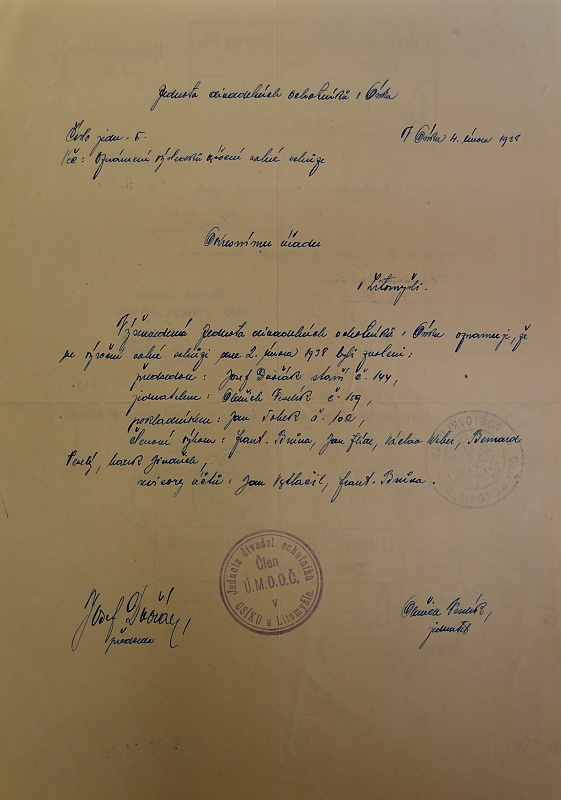 Jednota divadelních ochotníků v Osíku
Číslo jedn. 5.
V Osíku 4. února 1938
Věc: Oznámení výsledků výroční valné schůze
Okresnímu úřadu
v Litomyšli.
Výšeuvedená Jednota divadelních ochotníků v Osíku oznamuje, že
na výroční valné schůzi dne 2. února 1938 byli zvoleni:
předsedou: Josef Dvořák starší č. 144,
jednatelem: Oldřich Veselík č. 159,
pokladníkem: Jan č. 102,
Členové výboru: Frant. Brůna, Jan Václav Weber, Bernard
Veselý, Jindřich,
revisory účtů: Jan Vytlačil, Frant. Brůna.
Jednota divadel. ochotníků
Člen
Ú.M.D.O.Č.
v
OSÍKU u Litomyšle.
Josef Dvořák,
předseda
Oldřich Veselík,
jednatel